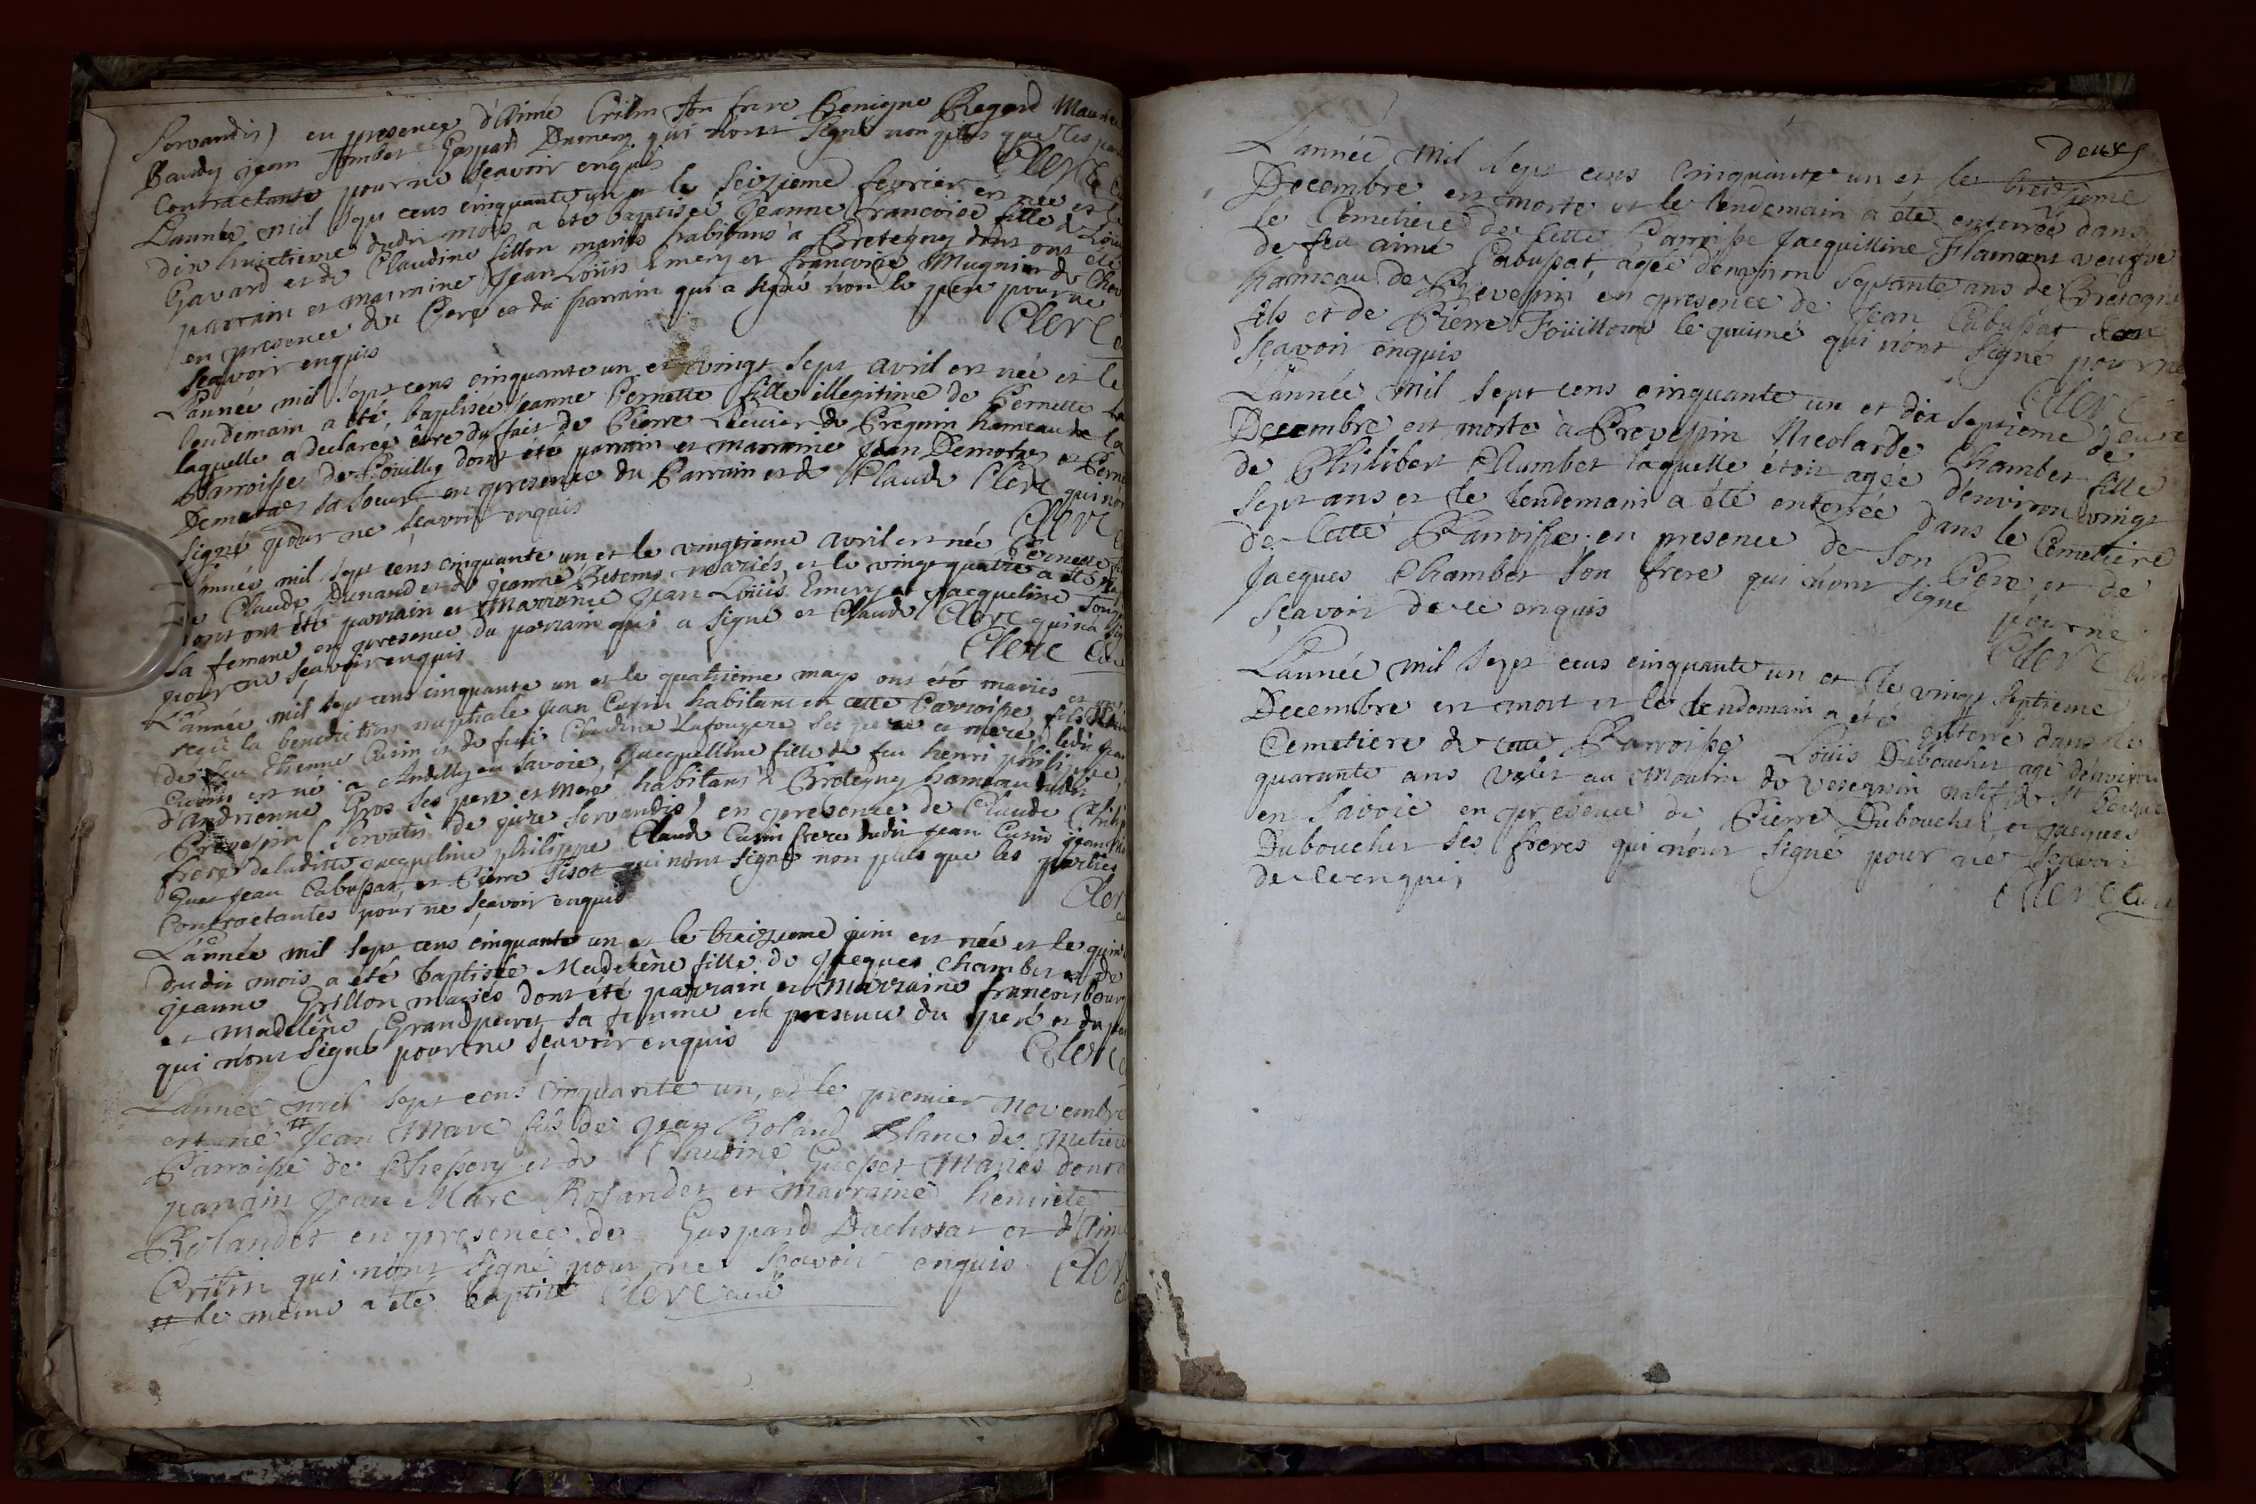 Servandis) en presence d'Aimé Critin son frere Benigne Regard Maurice
Baudy jean Jombet Gaspard Dumery qui n'ont signé non plus que les par
Contractants pour ne sçavoir enquis
Clerc
L'année mil sept cens cinquante un et le seizieme fevrier est née et le
dix huictieme dudit mois a été baptisée Jeanne francoise fille de Loüis
Gavard et de Claudine fillon mariés habitans a Bretegny dont ont été
parrain et marraine Jean Loüis Emery et francoise Mugnier de
en presence du Pere et du parrain qui a signé non le pere pour ne
sçavoir enquis
Clerc
L'année mil sept cens cinquante un et vingt sept avril est née et le
lendemain a été baptisée Jeanne Pernette fille illegitime de Pernette
laquelle a declaree être du fait de Pierre de Pregnin hameau de la
Parroisse de Pouilly dont été parrain et marraine Jean Demorax et Perne
Demorax sa soeur en presence du Parrain et de Claude Clerc qui n'ont
signé pour ne sçavoir enquis
Clerc
L'année mil sept cens cinquante un et le vingtieme avril est née Pernette
de Claude Dunand et de jeanne Betems mariés et le vingt quatre a été
dont ont été parrain et marraine Jean Loüis Emery et Jacqueline
sa femme en presence du parrain qui a signé et Claude Clerc qui n'a
pour ne sçavoir enquis
Clerc Curé
L'année mil sept cens cinquante un et le quatrieme mays ont été mariés et
reçu la benediction nuptiale jean Cusin habitant en cette Parroisse fils
de feu Etienne Cusin et de feüe Claudine Lafougere ses pere et mere ledit jean
Cusin est né a Andilly en Savoie, Jacquelline fille de feu henri phili
d'Andrienne Gros ses pere et mere habitans a Bretegny hameau dudit
Prevessin (Servatis de jure servandis) en presence de Claude Philip
frere de ladite Jacqueline philippe Claude Cusin frere dudit jean Cusin
jean Cabussat et Pierre Pisot qui n'ont signé non plus que les parties
Contractantes pour ne sçavoir enquis
Cler
L'année mil sept cens cinquante un et le treizieme juin est née et le
dudit mois a été baptisée Madelène fille de Jacques Chambet et de
jeanne Grillon mariés dont été parrain et marraine francois
et Madelène Grandperret sa femme en presence du pere et du
qui n'ont signé pour ne sçavoir enquis
Clerc
L'année mil sept cens cinquante un, et le premier novembre
est né # Jean Marc fils de Jean Roland Blanc de
Parroisse de et de Claudine mariés dont
parrain Jean Marc Rolandet et marraine henriete
Rolandet en presence de Gaspard Dachosat et d'Aimé
Critin qui n'ont signé pour ne sçavoir enquis
Cler
# le meme a été baptisé Clerc curé
deux
L'année mil sept cens cinquante un et le treizieme
Decembre est morte et le lendemain a été enterrée dans
le Cemetiere de cette Parroisse Jacquilline Flamant veufve
de feu aimé Cabussat, agée d'environ septante ans de Bretegny
hameau de Prevessin en presence de Jean Cabussat son
fils et de Pierre Foüilloux le puiné qui n'ont signé pour ne
sçavoir enquis
Clerc
L'année mil sept cens cinquante un et dix septieme de
Decembre est morte à Prevessin Nicolarde Chambet fille
de Philibert Chambet laquelle étoit agée d'environ vingt
sept ans et le lendemain a été enterrée dans le Cemetiere
de Cette Parroisse en presence de Son Pere et de
Jacques Chambet son frere qui n'ont signé pour ne
sçavoir de ce enquis
Clerc Curé
L'année mil sept cens cinquante un et le vingt septieme
Decembre est mort et le lendemain a été enterré dans le
Cemetiere de cette Parroisse Loüis Dubouchet agé d'environ
quarante ans valet au Moulin de Veregnin natif de St
en Savoie en presence de Pierre Dubouchet et jacques
Dubouchet ses freres qui n'ont signé pour ne sçavoir
de ce enquis
Clerc Curé